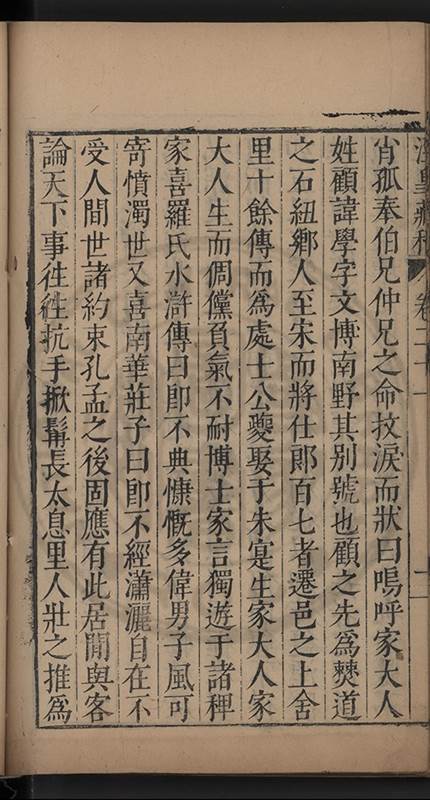 涇臯藏稿 卷二十一
肖孤奉伯兄仲兄之命抆淚而狀曰嗚呼家大人
姓顧諱學字文博南野其別號也顧之先爲僰道
之石紐鄉人至宋而將仕郎百七者遷邑之上舍
里十餘傳而爲處士公夔娶于朱寔生家大人家
大人生而倜儻負氣不耐博士家言獨遊于諸稗
家喜羅氏水滸傳曰即不典慷慨多偉男子風可
寄憤濁世又喜南華莊子曰即不經瀟灑自在不
受人間世諸約束孔孟之後固應有此居閒與客
論天下事徃徃抗手掀髯長太息里人壯之推爲